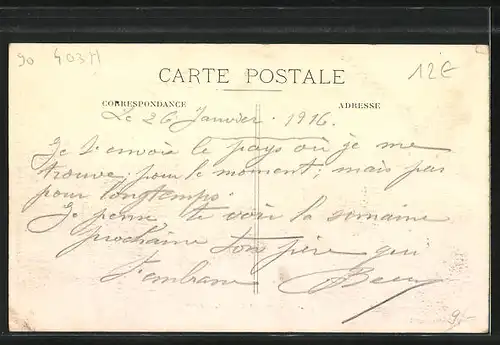 90 403H
12€
CARTE POSTALE
CORRESPONDANCE
ADRESSE
Le 26 Janvier . 1916.
Je t'envoie le pays où je me
trouve, pour le moment; mais pas
pour longtemps.
Je pense te voir la semaine
prochaine ton père qui
t'embrasse
9.-